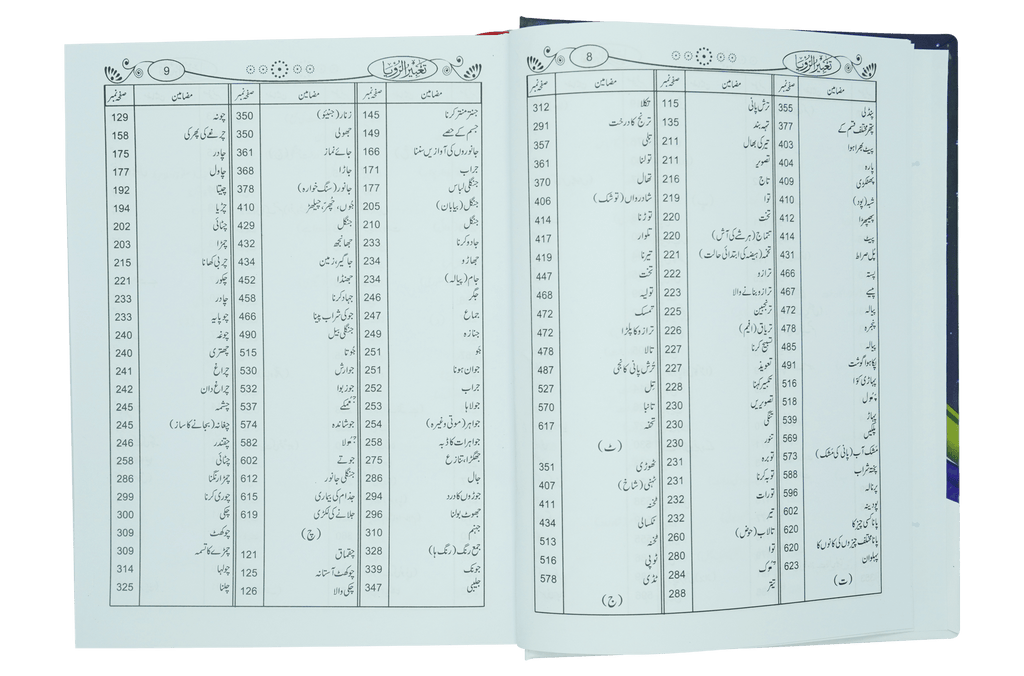 تعبیر الرؤیا 8
مضامین صفحہ نمبر
پنڈلی 355
پتھر مختلف قسم کے 377
پیٹ بھرا ہوا 403
پارہ 404
پھٹکڑی 409
410
پھیپھڑا 412
پیٹ 414
پل صراط 431
پستہ 466
پیسے 467
پیالہ 472
پنجرہ 478
پیالہ 485
پکا ہوا گوشت 491
پہاڑی کوّا 516
پھول 518
پہاڑ 539
پلکیں 569
مشک آب (پانی کی مشک) 573
پختہ شراب 588
پرنالہ 596
پودینہ 602
پانا کسی چیز کا 620
پانا مختلف چیزوں کی کانوں کا 620
پہلوان 623
(ت)
مضامین صفحہ نمبر
ترش پانی 115
تہہ بند 135
تیر کی بھال 211
تصویر 211
تاج 216
توا 219
تخت 220
تتماج (ہر شے کی آش) 220
تخمہ (ہیضہ کی ابتدائی حالت) 221
ترازہ 222
ترازو بنانے والا 223
ترنجبین 225
تریاق (افیم) 226
تسبیح کرنا 227
تعویذ 227
تکبیر کہنا 228
تصویریں 230
تلی 230
تنور 230
توبرہ 231
توبہ کرنا 231
تورات 232
تیر 232
تالاب (حوض) 260
توا 280
تھوک 284
تیتر 288
مضامین صفحہ نمبر
تکلا 312
ترنج کا درخت 291
تتلی 357
تولنا 361
تھال 370
شادرواں (توشک) 406
توڑنا 414
تلوار 417
تیرنا 419
تخت 447
تولیہ 468
تمسک 472
ترازو کا پلڑا 472
تالا 478
ترش پانی کانجی 487
تل 527
تانبا 570
تحفہ 617
(ٹ)
ٹھوڑی 351
ٹہنی (شاخ) 407
ٹخنہ 411
ٹکسالی 434
ٹخنہ 513
ٹوپی 516
ٹڈی 578
(ج)
تعبیر الرؤیا 9
مضامین صفحہ نمبر
جنتر منتر کرنا 145
جسم کے حصے 149
جانوروں کی آوازیں سننا 166
جراب 171
جنگلی لباس 177
جنگل (بیابان) 205
جنگل 210
جادو کرنا 233
جھاڑو 234
جام (پیالہ) 234
جگر 246
جماع 247
جنازہ 249
جو 251
جوان ہونا 251
جراب 252
جولاہا 253
جواہر (موتی وغیرہ) 254
جواہرات کا ڈبہ 258
جھگڑا، تنازع 275
جال 285
جوڑوں کا درد 294
جھوٹ بولنا 296
جہنم 310
جمع رنگ (رنگ ہا) 328
جونک 339
جلیبی 347
مضامین صفحہ نمبر
زنار (جنیئو) 350
جھولی 350
جائے نماز 361
جاڑا 368
جانور (سنگ خوارہ) 378
جوں، مچھر، چیلھڑ 410
جنگل 429
جھانجھ 432
جاگیر، زمین 434
جھنڈا 452
جہاد کرنا 458
جو کی شراب پینا 466
جنگلی بیل 490
جوتا 515
جوارش 530
جوز بوا 532
جھمکے 537
جوشاندہ 574
جھولا 582
جوتے 602
جنگلی جانور 612
جذام کی بیماری 615
جلانے کی لکڑی 619
(چ)
چقماق 121
چوکھٹ آستانہ 125
چکی والا 126
مضامین صفحہ نمبر
چونہ 129
چرخے کی پھرکی 158
چادر 175
چاول 177
چیتا 192
چڑیا 194
چٹائی 202
چمڑا 203
چربی کھانا 215
چکور 221
چادر 233
چوپایہ 233
چوغہ 240
چھتری 240
چراغ 241
چراغ دان 242
چشمہ 245
چغانہ (بجانے کا ساز) 245
چقندر 246
چٹائی 258
چمڑا رنگنا 286
چوری کرنا 299
چکی 300
چوکھٹ 309
چمڑے کا تسمہ 309
چولہا 314
چلنا 325